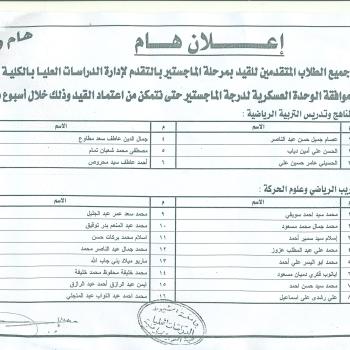 هام و
إعــلان هـام
جميع الطلاب المتقدمين للقيد بمرحلة الماجستير بالتقدم لإدارة الدراسات العليا بالكلية
موافقة الوحدة العسكرية لدرجة الماجستير حتى نتمكن من اعتماد القيد وذلك خلال أسبوع
ناهج وتدريس التربية الرياضية :
م الاسم م الاسم
١ عصام جميل حسن عبد الناصر ٤ جمال الدين عاطف سعد مطاوع
٢ الحسن علي أمين دياب ٥ مصطفى محمد شعبان تمام
٣ الحسيني عامر حسين علي ٦ أحمد عاطف سيد محروص
ريب الرياضي وعلوم الحركة :
م الاسم م الاسم
محمد سيد أحمد سويفي ٩ محمد سعد عمر عبد الجليل
محمد جمال محمد مسعود ١٠ محمد عبد المنعم بدر توفيق
إسلام سيد سمير أحمد ١١ اسلام محمد بركات حسن
محمد علي عبد المطلب عزوز ١٢ محمد جمال عبد الناصر محمد
محمد ابو اليسر علي أحمد ١٣ ماريو ميلاد بني جاب الله
ابانوب فكري دميان مسعود ١٤ محمد خليفة محفوظ محمد خليفة
محمد سيد حسن أحمد ١٥ ايمن عبد الرازق أحمد عبد الرازق
علي رشدي علي اسماعيل ١٦ محمد احمد عبد التواب عبد المتجلي